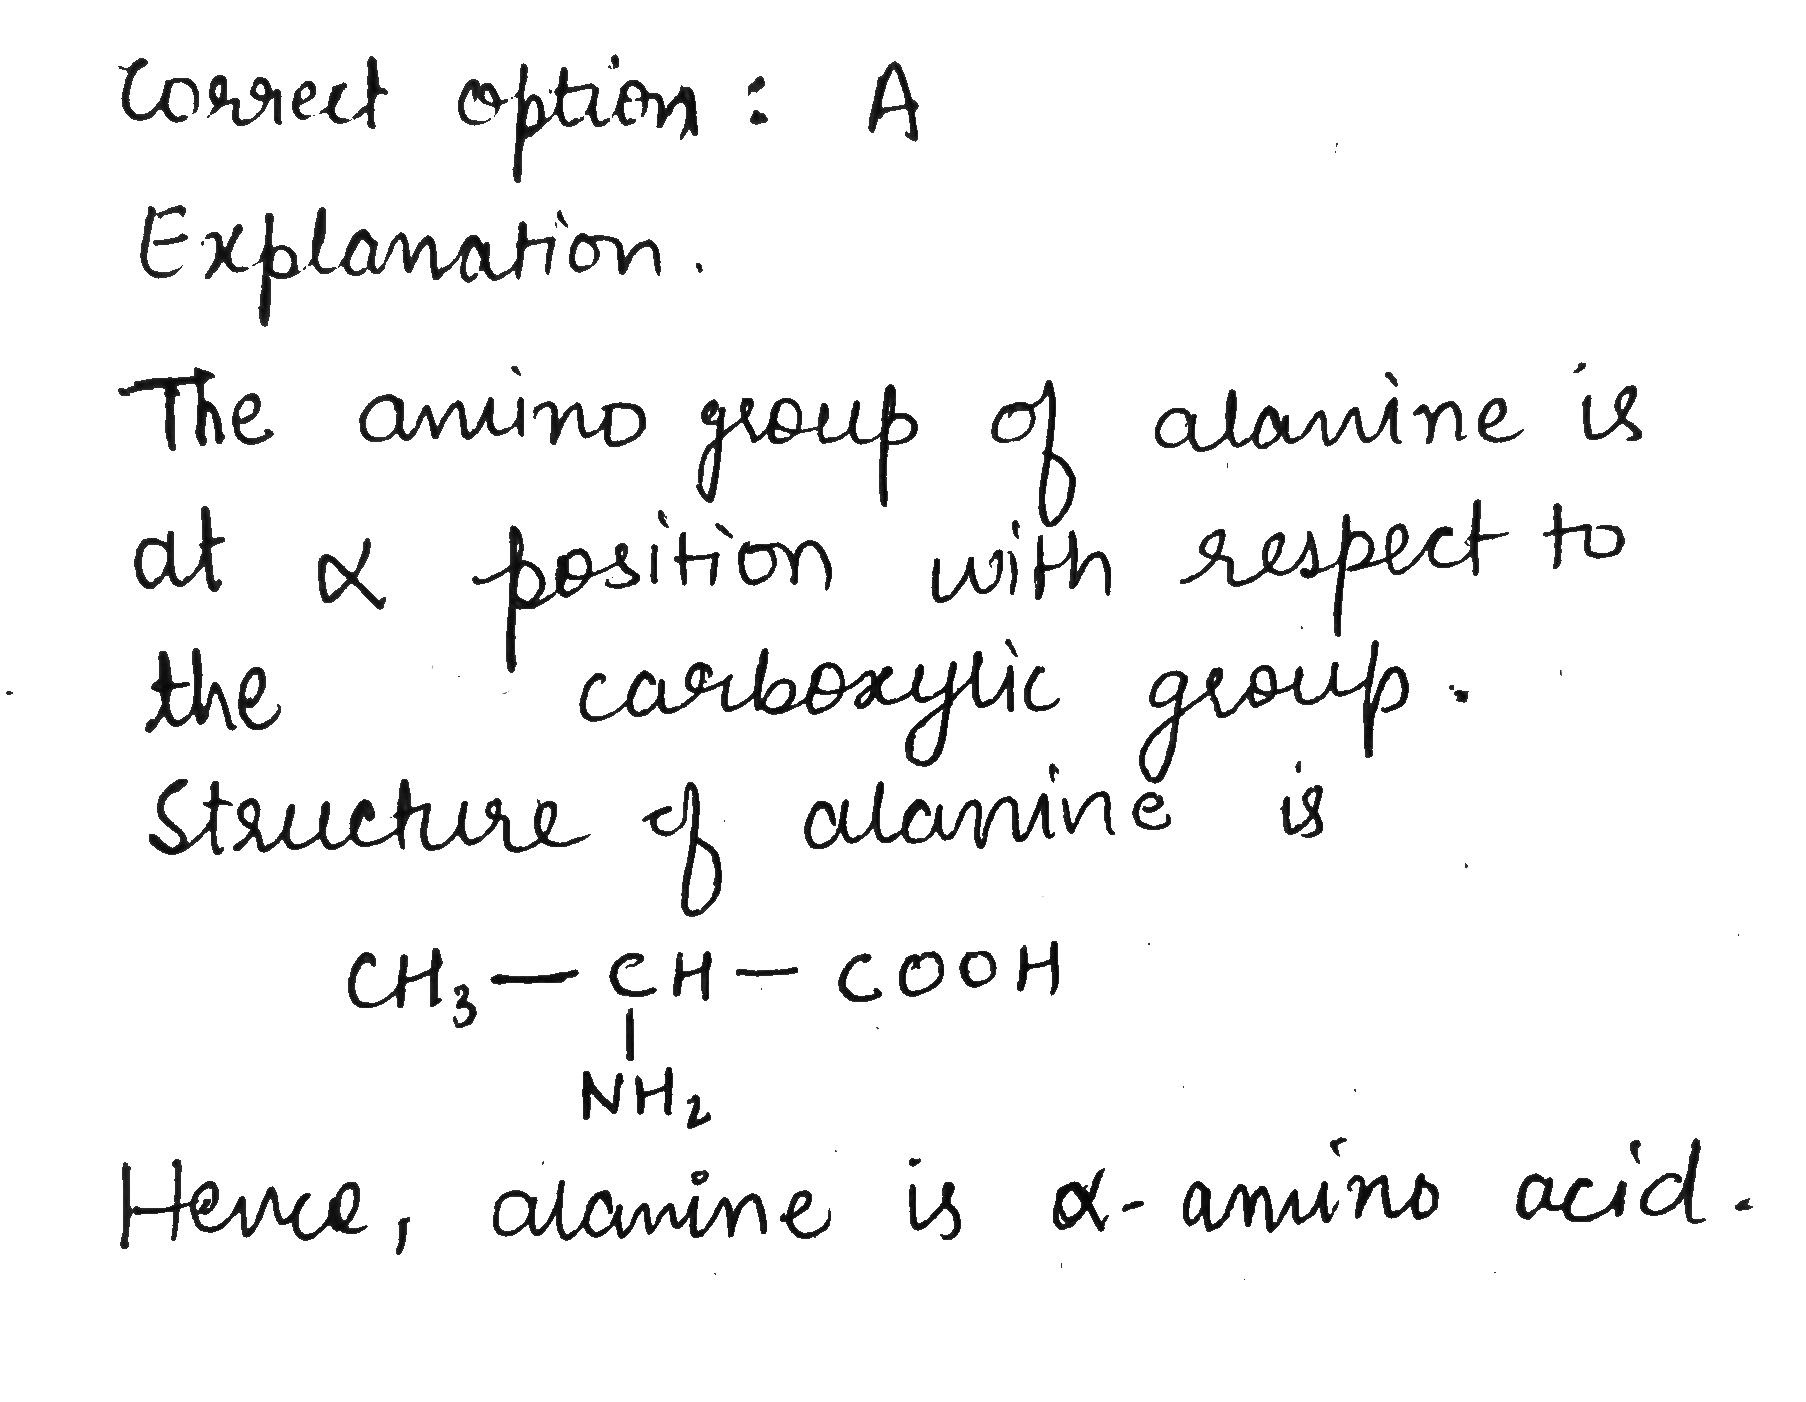 Correct option : A
Explanation.
The amino group of alanine is
at α position with respect to
the carboxylic group.
Structure of alanine is
CH₃ — CH — COOH
|
NH₂
Hence, alanine is α-amino acid.